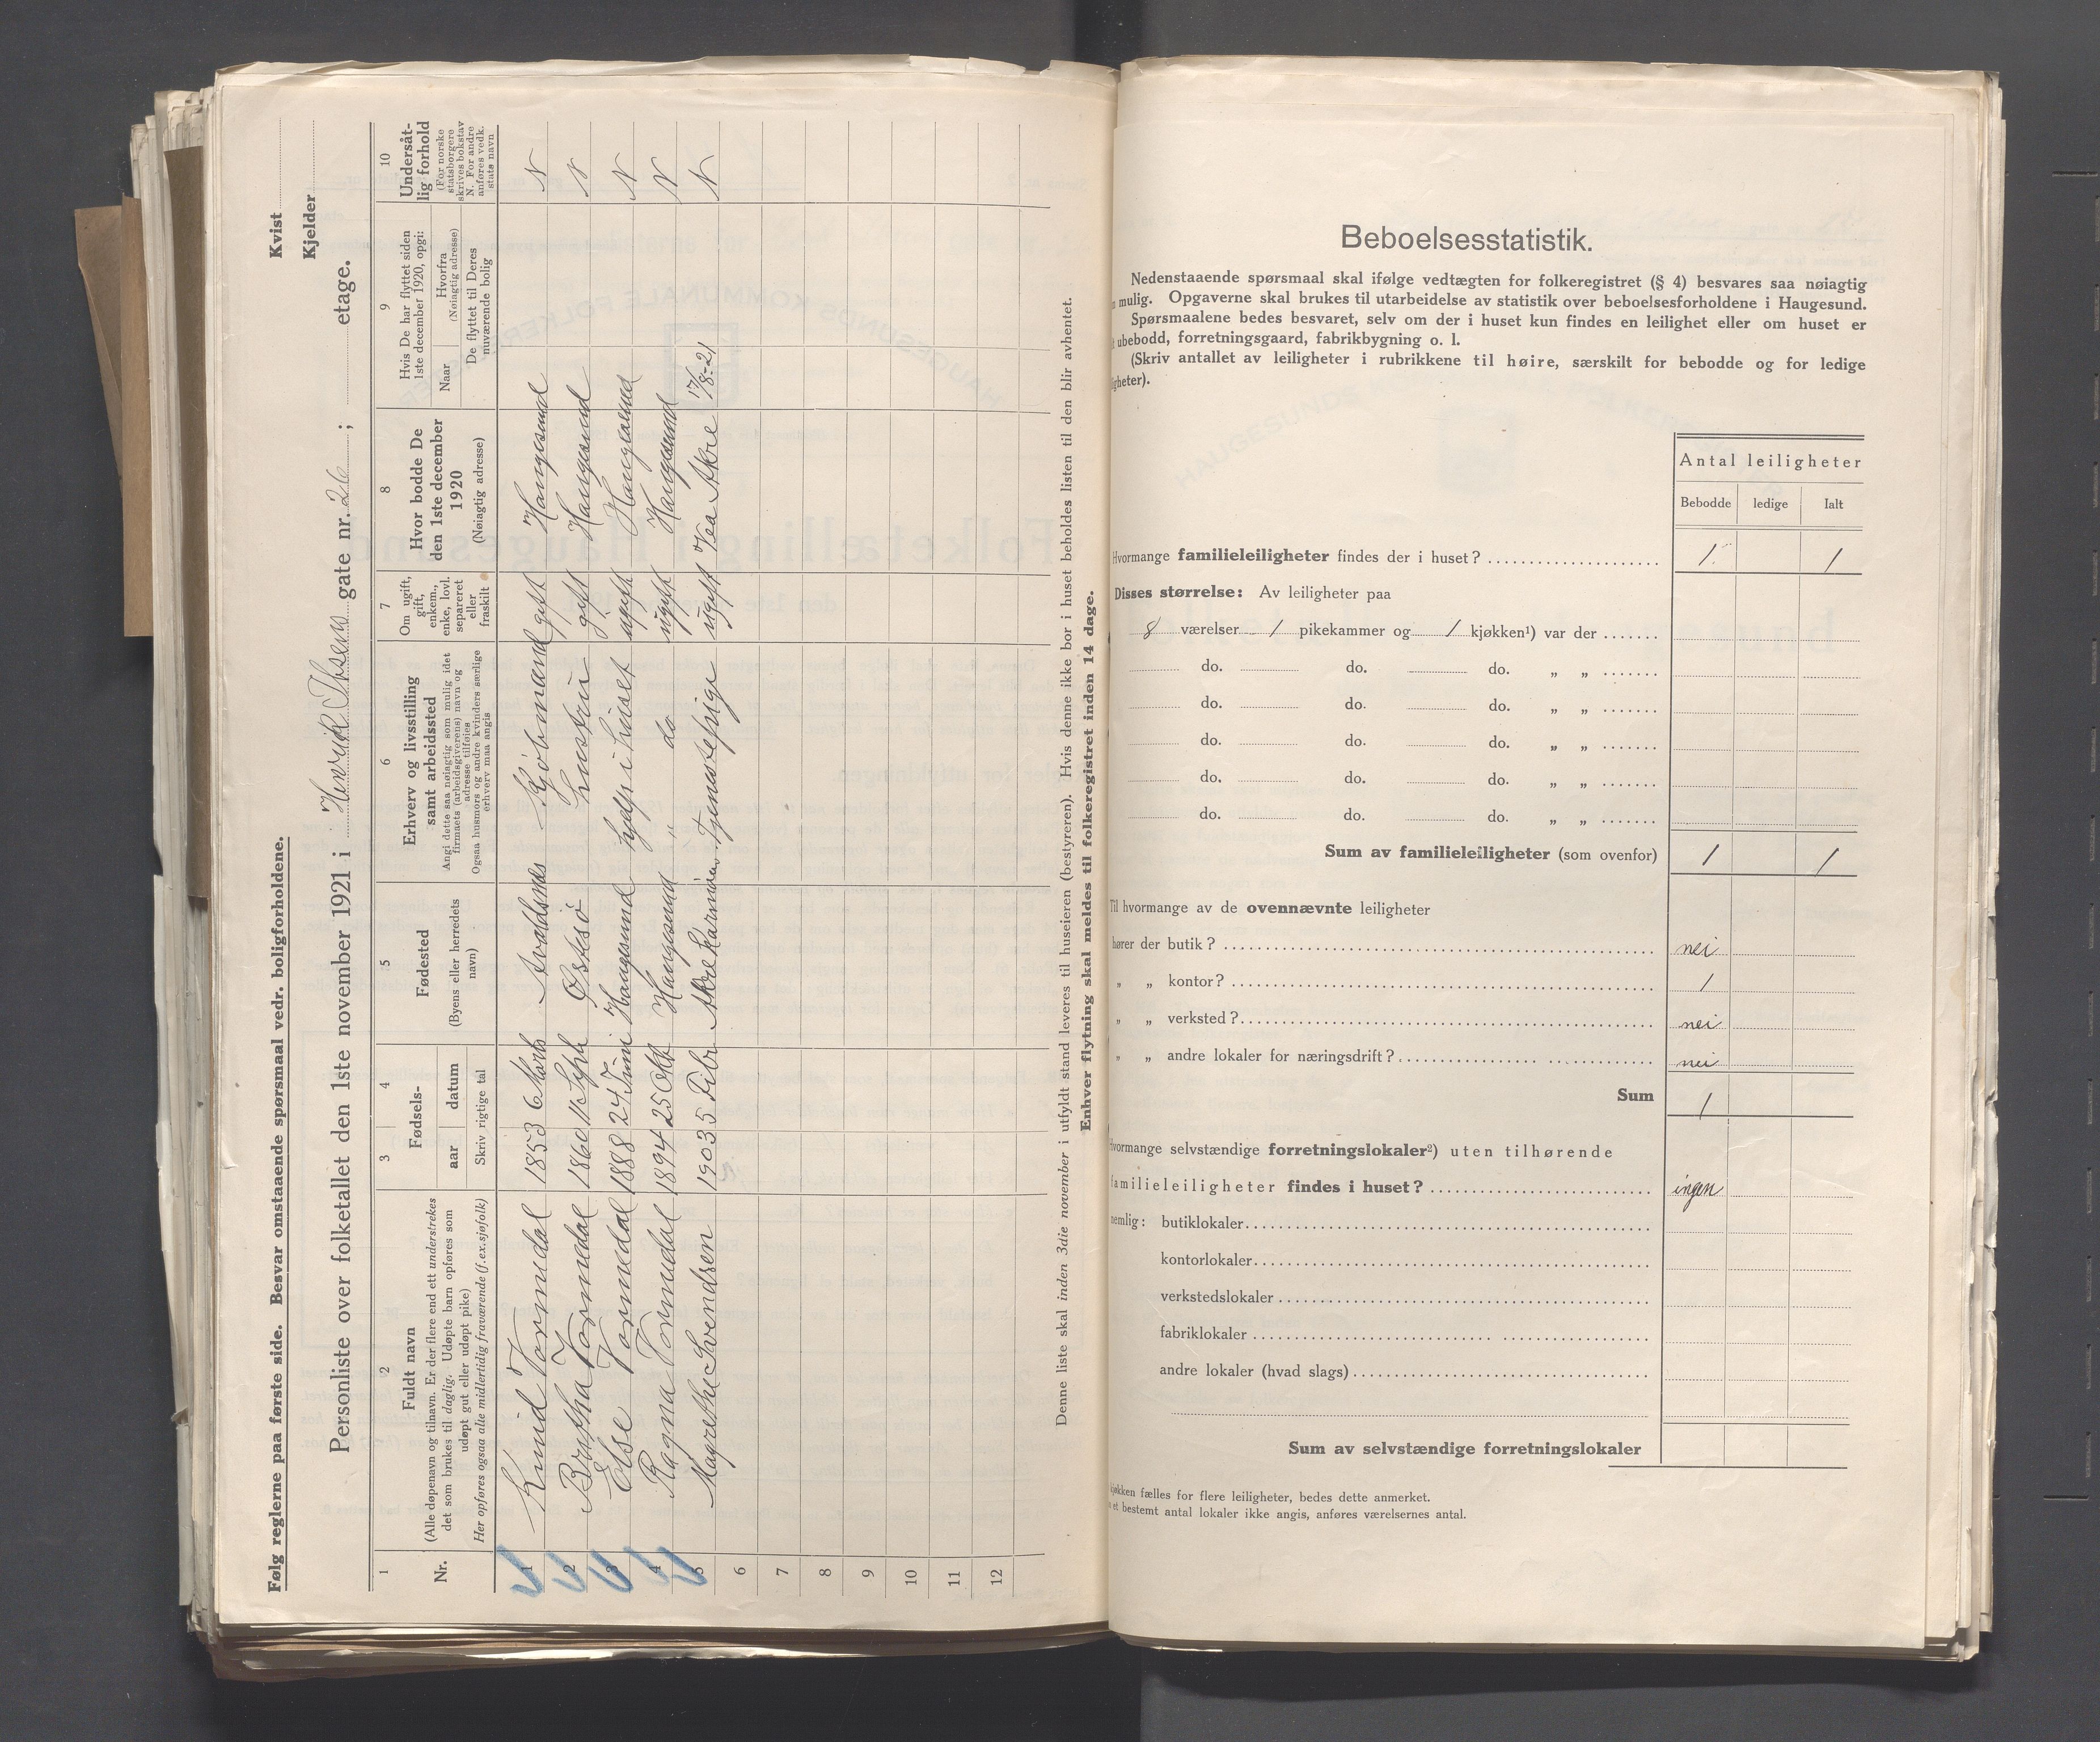 Følg reglerne paa første side. Besvar omstaaende spørsmaal vedr. boligforholdene.
Kvist
Kjelder
Personliste over folketallet den 1ste november 1921 i Henrik Ibsens gate nr. 26 ; etage.
1
Nr.
2
Fuldt navn
(Alle døpenavn og tilnavn. Er der flere end ett understrekes
det som brukes til daglig. Udøpte barn opføres som
udøpt gut eller udøpt pike)
Her opføres ogsaa alle midlertidig fraværende (f. ex. sjøfolk)
3 4
Fødsels-
aar datum
Skriv rigtige tal
5
Fødested
(Byens eller herredets
navn)
6
Erhverv og livsstilling
samt arbeidssted
Angi dette saa nøiagtig som mulig idet
firmaets (arbeidsgiverens) navn og
adresse tilføies
Ogsaa husmors og andre kvinders særlige
erhverv maa angis
7
Om ugift,
gift,
enkem.,
enke, lovl.
separeret
eller
fraskilt
8
Hvor bodde De
den 1ste december
1920
(Nøiagtig adresse)
9
Hvis De har flyttet siden
1ste december 1920, opgi:
Naar
Hvorfra
(Nøiagtig adresse)
De flyttet til Deres
nuværende bolig
10
Undersåt-
lig forhold
(For norske
statsborgere
skrives bokstav
N. For andre
anføres vedk.
stats navn
1 Knud Tormodal 1853 6 Marts Avaldsnes Kjøbmand gift Haugesund N
2 Bertha Tormodal 1860 11 Septb Østesø hustru gift Haugesund N
3 Else Tormodal 1888 24 Juni Haugesund hjelp i huset ugift Haugesund N
4 Ragna Tormodal 1894 25 Okt Haugesund " do ugift Haugesund N
5 Magrethe Svendsen 1903 5 Feb Akre Karmøen Tjenestepige ugift Vea Akre 17/8-21 N
6
7
8
9
10
11
12
Denne liste skal inden 3die november i utfyldt stand leveres til huseieren (bestyreren). Hvis denne ikke bor i huset beholdes listen til den blir avhentet.
Enhver flytning skal meldes til folkeregistret inden 14 dage.
Beboelsesstatistik.
Nedenstaaende spørsmaal skal ifølge vedtægten for folkeregistret (§ 4) besvares saa nøiagtig
mulig. Opgaverne skal brukes til utarbeidelse av statistik over beboelsesforholdene i Haugesund.
Spørsmaalene bedes besvaret, selv om der i huset kun findes en leilighet eller om huset er
ubebodd, forretningsgaard, fabrikbygning o. l.
(Skriv antallet av leiligheter i rubrikkene til høire, særskilt for bebodde og for ledige
igheter).
Antal leiligheter
Bebodde ledige Ialt
Hvormange familieleiligheter findes der i huset? 1 1
Disses størrelse: Av leiligheter paa
8 værelser 1 pikekammer og 1 kjøkken¹) var der
do. do. do. „ „
do. do. do. „ „
do. do. do. „ „
do. do. do. „ „
do. do. do. „ „
Sum av familieleiligheter (som ovenfor) 1 1
Til hvormange av de ovennævnte leiligheter
hører der butik? nei
„ „ kontor? 1
„ „ verksted? nei
„ „ andre lokaler for næringsdrift? nei
Sum 1
Hvormange selvstændige forretningslokaler²) uten tilhørende
familieleiligheter findes i huset? ingen
nemlig: butiklokaler
kontorlokaler
verkstedslokaler
fabriklokaler
andre lokaler (hvad slags)
Sum av selvstændige forretningslokaler
kjøkken fælles for flere leiligheter, bedes dette anmerket.
et bestemt antal lokaler ikke angis, anføres værelsernes antal.